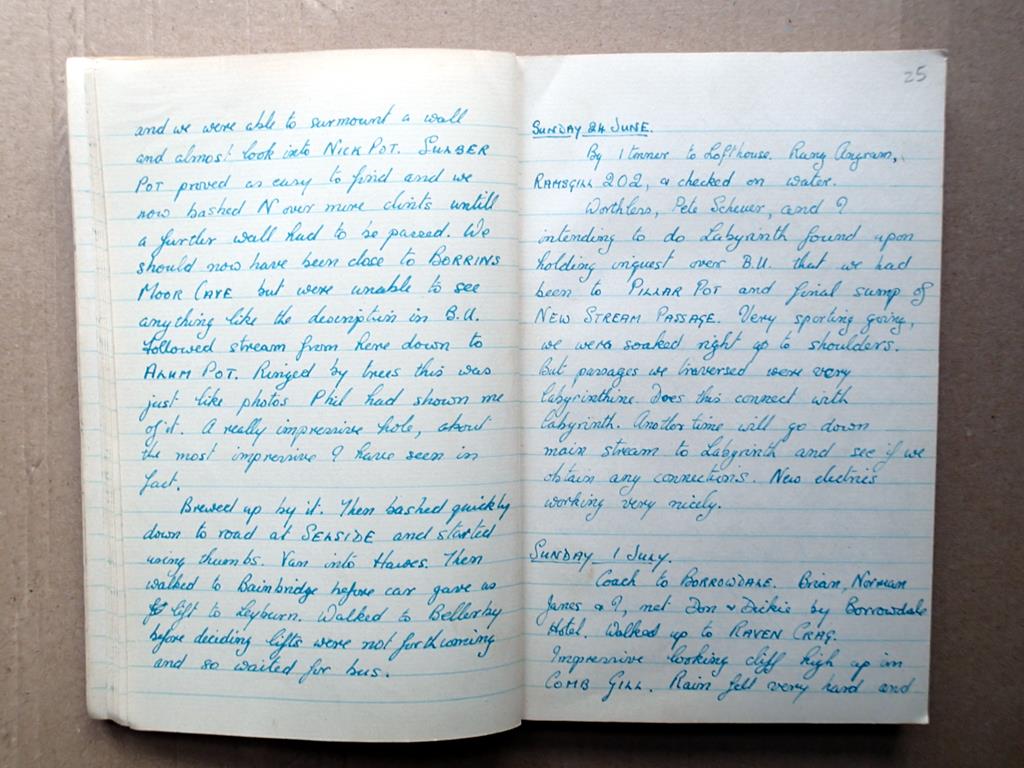 and we were able to surmount a wall
and almost look into NICK POT. SULBER
POT proved as easy to find and we
now bashed N over more clints untill
a further wall had to be passed. We
should now have been close to BORRINS
MOOR CAVE but were unable to see
anything like the description in B.U.
Followed stream from here down to
ALUM POT. Ringed by trees this was
just like photos Phil had shown me
of it. A really impressive hole, about
the most impressive I have seen in
fact.
Brewed up by it. Then bashed quickly
down to road at SELSIDE and started
using thumbs. Van into Hawes. Then
walked to Bainbridge before car gave us
lift to Leyburn. Walked to Bellerby
before deciding lifts were not forthcoming
and so waited for bus.
25
SUNDAY 24 JUNE.
By 1 tonner to Lofthouse. Rang Angram,
RAMSGILL 202, & checked on water.
Worthless, Pete Scheuer, and I
intending to do Labyrinth found upon
holding inquest over B.U. that we had
been to PILLAR POT and final sump of
NEW STREAM PASSAGE. Very sporting going,
we were soaked right up to shoulders.
But passages we traversed were very
labyrinthine. Does this connect with
Labyrinth. Another time will go down
main stream to Labyrinth and see if we
obtain any connections. New electrics
working very nicely.
SUNDAY 1 JULY.
Coach to BORROWDALE. Brian, Norman
Janes & I, met Don & Dickie by Borrowdale
Hotel. Walked up to RAVEN CRAG.
Impressive looking cliff high up in
COMB GILL. Rain fell very hard and